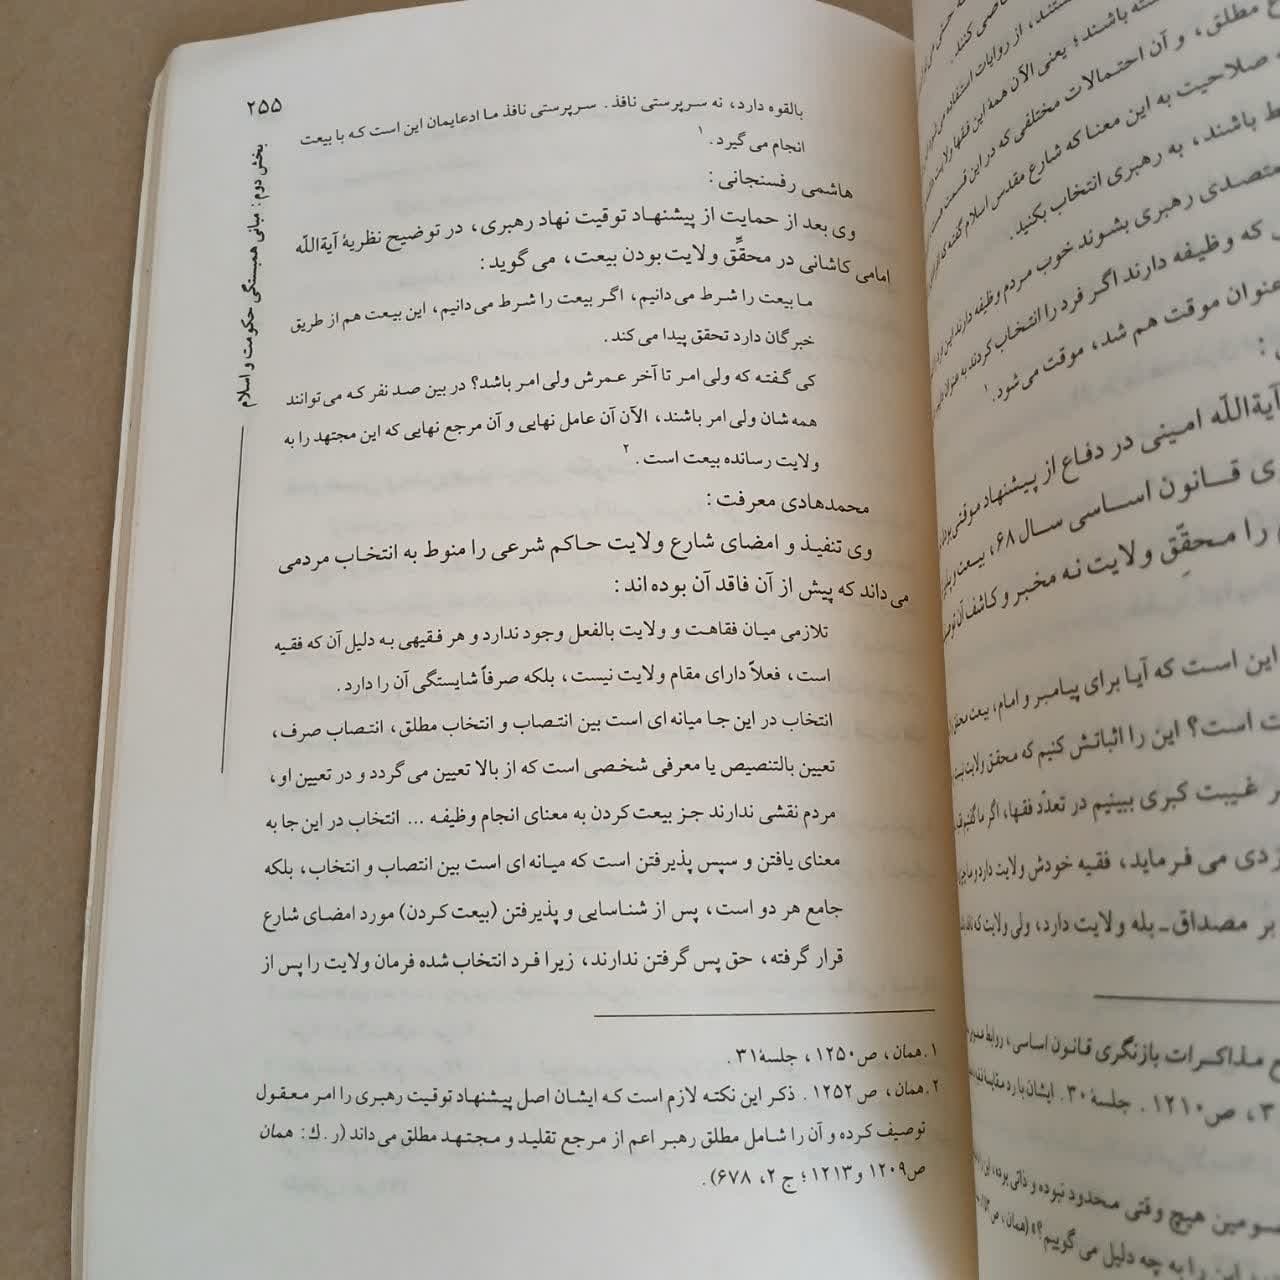 ۲۵۵
بخش دوم: مبانی همبستگی حکومت و اسلام
بالقوه دارد، نه سرپرستی نافذ. سرپرستی نافذ ما ادعایمان این است که با بیعت
انجام می گیرد.۱
هاشمی رفسنجانی:
وی بعد از حمایت از پیشنهاد توقیت نهاد رهبری، در توضیح نظریهٔ آیةاللّه
امامی کاشانی در محقِّق ولایت بودن بیعت، می گوید:
ما بیعت را شرط می دانیم، اگر بیعت را شرط می دانیم، این بیعت هم از طریق
خبرگان دارد تحقق پیدا می کند.
کی گفته که ولی امر تا آخر عمرش ولی امر باشد؟ در بین صد نفر که می توانند
همه شان ولی امر باشند، الآن آن عامل نهایی و آن مرجع نهایی که این مجتهد را به
ولایت رسانده بیعت است.۲
محمدهادی معرفت:
وی تنفیذ و امضای شارع ولایت حاکم شرعی را منوط به انتخاب مردمی
می داند که پیش از آن فاقد آن بوده اند:
تلازمی میان فقاهت و ولایت بالفعل وجود ندارد و هر فقیهی به دلیل آن که فقیه
است، فعلاً دارای مقام ولایت نیست، بلکه صرفاً شایستگی آن را دارد.
انتخاب در این جا میانه ای است بین انتصاب و انتخاب مطلق، انتصاب صرف،
تعیین بالتنصیص یا معرفی شخصی است که از بالا تعیین می گردد و در تعیین او،
مردم نقشی ندارند جز بیعت کردن به معنای انجام وظیفه ... انتخاب در این جا به
معنای یافتن و سپس پذیرفتن است که میانه ای است بین انتصاب و انتخاب، بلکه
جامع هر دو است، پس از شناسایی و پذیرفتن (بیعت کردن) مورد امضای شارع
قرار گرفته، حق پس گرفتن ندارند، زیرا فرد انتخاب شده فرمان ولایت را پس از
۱. همان، ص۱۲۵۰، جلسهٔ ۳۱.
۲. همان، ص۱۲۵۲. ذکر این نکته لازم است که ایشان اصل پیشنهاد توقیت رهبری را امر معقول
توصیف کرده و آن را شامل مطلق رهبر اعم از مرجع تقلید و مجتهد مطلق می داند (ر. ك: همان
ص۱۲۰۹ و ۱۲۱۳؛ ج ۲، ۶۷۸).
مطلق، و آن احتمالات مختلفی که در این قسمت
صلاحیت به این معنا که شارع مقدس اسلام گفته
باشند، به رهبری انتخاب بکنید.
متصدی رهبری بشوند خوب مردم وظیفه دارند
که وظیفه دارند اگر فرد را انتخاب کردند به عنوان
عنوان موقت هم شد، موقت می شود.۱
آیةاللّه امینی در دفاع از پیشنهاد موقتی
قانون اساسی سال ۶۸، بیعت و
را محقِّق ولایت نه مخبر و کاشف آن
این است که آیا برای پیامبر و امام، بیعت محقق
است؟ این را اثباتش کنیم که محقق ولایت
غیبت کبری ببینیم در تعدّد فقها، اگر ما گفتیم
می فرماید، فقیه خودش ولایت دارد و
بر مصداق ـ بله ولایت دارد، ولی ولایت که
مذاکرات بازنگری قانون اساسی، روابط
۳، ص۱۲۱۰. جلسهٔ ۳۰. ایشان با رد مقایسه
هیچ وقتی محدود نبوده و ذاتی بوده،
این را به چه دلیل می گوییم؟» (همان،